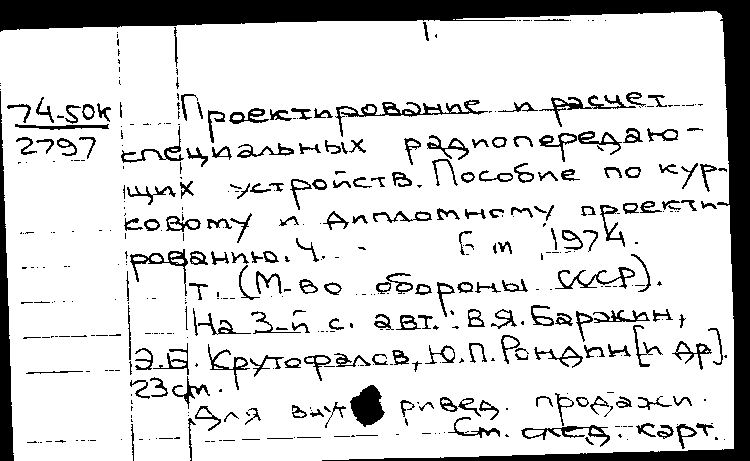 1.
74-50к
2797
Проектирование и расчет
специальных радиопередаю-
щих устройств. Пособие по кур-
совому и дипломному проекти-
рованию. Ч. - Б м 1974.
т. (М-во обороны СССР).
На 3-й с. авт.: В.Я. Баржин,
Э.Б. Крутофалов, Ю.П. Рондин [и др].
23 см.
Для внут ривед. продажи.
См. след. карт.